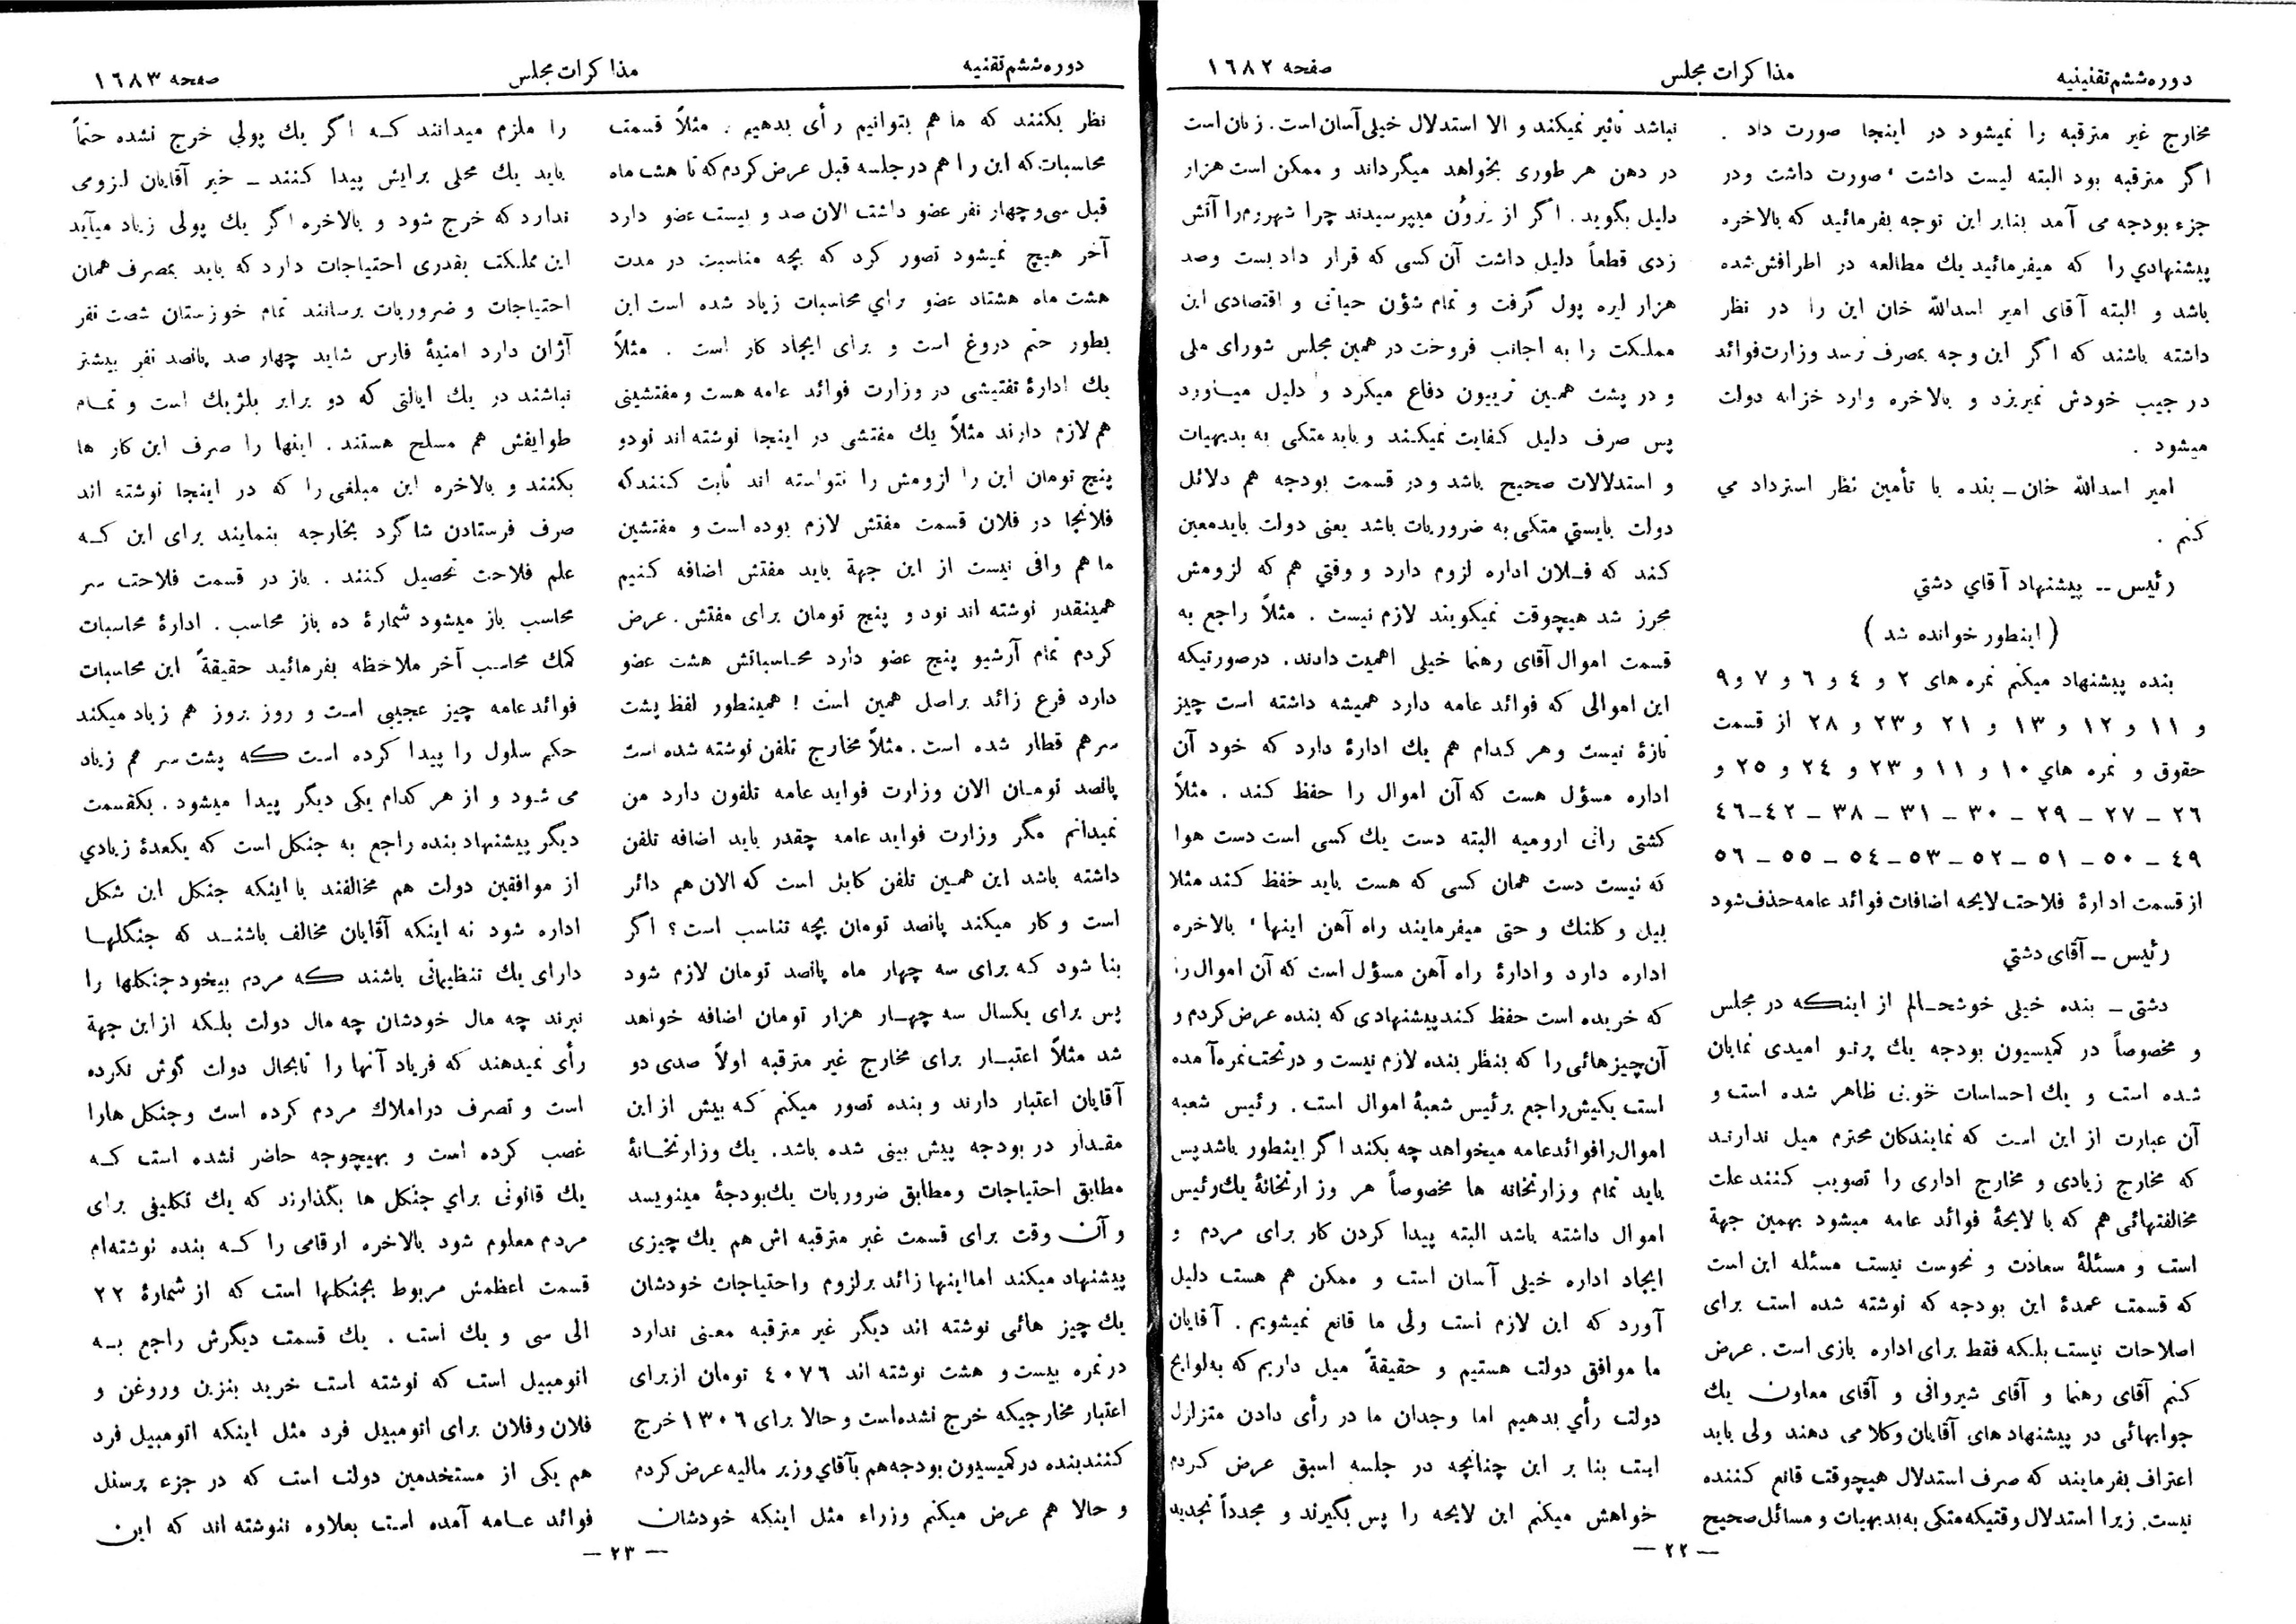 دوره ششم تقنینیه
مذاکرات مجلس
صفحه ۱۶۸۲
مخارج غیر مترقبه را نمیشود در اینجا صورت داد .
اگر مترقبه بود البته لیست داشت ، صورت داشت ودر
جزء بودجه می آمد بنابر این توجه بفرمائید که بالاخره
پیشنهادي را که میفرمائید یك مطالعه در اطرافش شده
باشد و البته آقای امیر اسدالله خان این را در نظر
داشته باشند که اگر این وجه بمصرف نرسد وزارت فوائد
در جیب خودش نمیریزد و بالاخره وارد خزانه دولت
میشود .
امیر اسدالله خان ـ بنده با تأمین نظر استرداد می
کنم .
رئیس -- پیشنهاد آقاي دشتي
( اینطور خوانده شد )
بنده پیشنهاد میکنم نمره های ۲ و ٤ و ٦ و ۷ و ۹
و ۱۱ و ۱۲ و ۱۳ و ۲۱ و ۲۳ و ۲۸ از قسمت
حقوق و نمره هاي ۱۰ و ۱۱ و ۲۳ و ۲٤ و ۲٥ و
۲٦ – ۲۷ – ۲۹ – ۳۰ – ۳۱ – ۳۸ – ٤۲–٤٦
٤۹ – ٥۰ – ٥۱ – ٥۲ – ٥۳ – ٥٤ – ٥٥ – ٥٦
از قسمت ادارۀ فلاحت لایحه اضافات فوائد عامه حذف شود
رئیس – آقای دشتي
دشتی – بنده خیلی خوشحـالم از اینکه در مجلس
و مخصوصاً در کمیسیون بودجه یك پرتو امیدی نمایان
شده است و یك احساسات خوبی ظاهر شده است و
آن عبارت از این است که نمایندگان محترم میل ندارند
که مخارج زیادی و مخارج اداری را تصویب کنند علت
مخالفتهائی هم که با لایحۀ فوائد عامه میشود بهمین جهة
است و مسئلۀ سعادت و نحوست نیست مسئله این است
که قسمت عمدۀ این بودجه که نوشته شده است برای
اصلاحات نیست بلکه فقط برای اداره بازی است . عرض
کنم آقای رهنما و آقای شیروانی و آقای معاون یك
جوابهائی در پیشنهاد های آقایان وکلا می دهند ولی باید
اعتراف بفرمایند که صرف استدلال هیچوقت قانع کننده
نیست. زیرا استدلال وقتیکه متکی به بدیهیات و مسائل صحیح
نباشد تاثیر نمیکند و الا استدلال خیلی آسان است. زبان است
در دهن هر طوری بخواهد میگرداند و ممکن است هزار
دلیل بگوید. اگر از نرون میپرسیدند چرا شهر رم را آتش
زدی قطعاً دلیل داشت آن کسی که قرار داد بست وصد
هزار لیره پول گرفت و تمام شؤن حیاتی و اقتصادی این
مملکت را به اجانب فروخت در همین مجلس شورای ملی
و در پشت همین تریبون دفاع میکرد و دلیل میـاورد
پس صرف دلیل کفایت نمیکند و باید متکی به بدیهیات
و استدلالات صحیح باشد و در قسمت بودجه هم دلائل
دولت بایستي متکی به ضروریات باشد یعنی دولت باید معین
کند که فـلان اداره لزوم دارد و وقتي هم که لزومش
محرز شد هیچوقت نمیگویند لازم نیست . مثلاً راجع به
قسمت اموال آقای رهنما خیلی اهمیت دادند. درصورتیکه
این اموالی که فوائد عامه دارد همیشه داشته است چیز
تازۀ نیست وهر کدام هم یك ادارۀ دارد که خود آن
اداره مسؤل هست که آن اموال را حفظ کند . مثلاً
کشتی رانی ارومیه البته دست یك کسی است دست هوا
که نیست دست همان کسی که هست باید خفظ کند مثلا
بیل و کلنك و حتی میفرمایند راه آهن اینها ، بالاخره
اداره دارد و ادارۀ راه آهن مسؤل است که آن اموال را
که خریده است حفظ کند پیشنهادی که بنده عرض کردم و
آن چیزهائی را که بنظر بنده لازم نیست و در تحت نمره آمده
است یکیش راجع برئیس شعبۀ اموال است . رئیس شعبه
اموال را فوائدعامه میخواهد چه بکند اگر اینطور باشد پس
باید تمام وزارتخانه ها مخصوصاً هر وزارتخانۀ یك رئیس
اموال داشته باشد البته پیدا کردن کار برای مردم و
ایجاد اداره خیلی آسان است و ممکن هم هست دلیل
آورد که این لازم است ولی ما قانع نمیشویم . آقایان
ما موافق دولت هستیم و حقیقةً میل داریم که به لوایح
دولت رأي بدهیم اما وجدان ما در رأی دادن متزلزل
است بنا بر این چنانچه در جلسه اسبق عرض کردم
خواهش میکنم این لایحه را پس بگیرند و مجدداً تجدید
— ۲۲ —
دوره ششم تقنیه
مذاکرات مجلس
صفحه ۱٦۸۳
نظر بکنند که ما هم بتوانیم رأی بدهیم . مثلاً قسمت
محاسبات که این را هم در جلسه قبل عرض کردم که تا هشت ماه
قبل سی و چهار نفر عضو داشت الان صد و بیست عضو دارد
آخر هیچ نمیشود تصور کرد که بچه مناسبت در مدت
هشت ماه هشتاد عضو براي محاسبات زیاد شده است این
بطور حتم دروغ است و برای ایجاد کار است . مثلاً
یك ادارۀ تفتیشی در وزارت فوائد عامه هست و مفتشینی
هم لازم دارند مثلاً یك مفتشی در اینجا نوشته اند نودو
پنج تومان این را ازومش را نتوانسته اند ثابت کنند که
فلانجا در فلان قسمت مفتش لازم بوده است و مفتشین
ما هم وافی نیست از این جهة باید مفتش اضافه کنیم
همینقدر نوشته اند نود و پنج تومان برای مفتش. عرض
کردم تمام آرشیو پنج عضو دارد محـاسباتش هشت عضو
دارد فرع زائد بر اصل همین است ! همینطور لفظ پشت
سر هم قطار شده است. مثلاً مخارج تلفن نوشته شده است
پانصد تومـان الان وزارت فواید عامه تلفون دارد من
نمیدانم مگر وزارت فواید عامه چقدر باید اضافه تلفن
داشته باشد این همین تلفن کابش است که الان هم دائر
است و کار میکند پانصد تومان بچه تناسب است ؟ اگر
بنا شود که برای سه چهار ماه پانصد تومان لازم شود
پس برای یکسال سه چهـار هزار تومان اضافه خواهد
شد مثلاً اعتبـار برای مخارج غیر مترقبه اولاً صدی دو
آقایان اعتبار دارند و بنده تصور میکنم که بیش از این
مقـدار در بودجه پیش بینی شده باشد. یك وزارتخـانۀ
مطابق احتیاجات و مطابق ضروریات یك بودجۀ مینویسد
و آن وقت برای قسمت غیر مترقبه اش هم یك چیزی
پیشنهاد میکند اما اینها زائد بر لزوم واحتیاجات خودشان
یك چیز هائی نوشته اند دیگر غیر مترقبه معنی ندارد
در نمره بیست و هشت نوشته اند ٤۰۷٦ تومان از برای
اعتبار مخارجیکه خرج نشده است و حالا برای ۱۳۰٦ خرج
کنند بنده در کمیسیون بودجه هم بآقاي وزیر مالیه عرض کردم
و حالا هم عرض میکنم وزراء مثل اینکه خودشان
را ملزم میدانند که اگر یك پولی خرج نشده حتماً
باید یك محلی برایش پیدا کنند – خیر آقایان لزومی
ندارد که خرج شود و بالاخره اگر یك پولی زیاد میآید
این مملکت بقدری احتیاجات دارد که باید بمصرف همان
احتیاجات و ضروریات برسانند تمام خوزستان شصت نفر
آژان دارد امنیۀ فارس شاید چهار صد پانصد نفر بیشتر
نباشند در یك ایالتی که دو برابر بلژیك است و تمـام
طوایفش هم مسلح هستند . اینها را صرف این کار ها
بکنند و بالاخره این مبلغی را که در اینجا نوشته اند
صرف فرستادن شاگرد بخارجه بنمایند برای این که
علم فلاحت تحصیل کنند . باز در قسمت فلاحت سر
محاسب باز میشود شمارۀ ده باز محاسب . ادارۀ محاسبات
کمك محاسب آخر ملاحظه بفرمائید حقیقةً این محاسبات
فوائد عامه چیز عجیبی است و روز بروز هم زیاد میکند
حکیم سلول را پیدا کرده است که پشت سر هم زیاد
می شود و از هر کدام یکی دیگر پیدا میشود . یکقسمت
دیگر پیشنهاد بنده راجع به جنگل است که یکعدۀ زیادي
از موافقین دولت هم مخالفند با اینکه جنگل این شکل
اداره شود نه اینکه آقایان مخالف باشند که جنگلهـا
دارای یك تنظیماتی باشند که مردم بیخود جنگلها را
نبرند چه مال خودشان چه مال دولت بلکه از این جهة
رأی نمیدهند که فریاد آنها را تابحال دولت گوش نکرده
است و تصرف در املاك مردم کرده است و جنگل هارا
غصب کرده است و بهیچوجه حاضر نشده است که
یك قانونی براي جنگل ها بگذارند که یك تکلیفی برای
مردم معلوم شود بالاخره ارقامی را که بنده نوشته ام
قسمت اعظمش مربوط بجنگلها است که از شمارۀ ۲۲
الی سی و یك است . یك قسمت دیگرش راجع بـه
اتومبیل است که نوشته است خرید بنزین وروغن و
فلان و فلان برای اتومبیل فرد مثل اینکه اتومبیل فرد
هم یکی از مستخدمین دولت است که در جزء پرسنل
فوائد عـامه آمده است بعلاوه ننوشته اند که این
— ۲۳ —